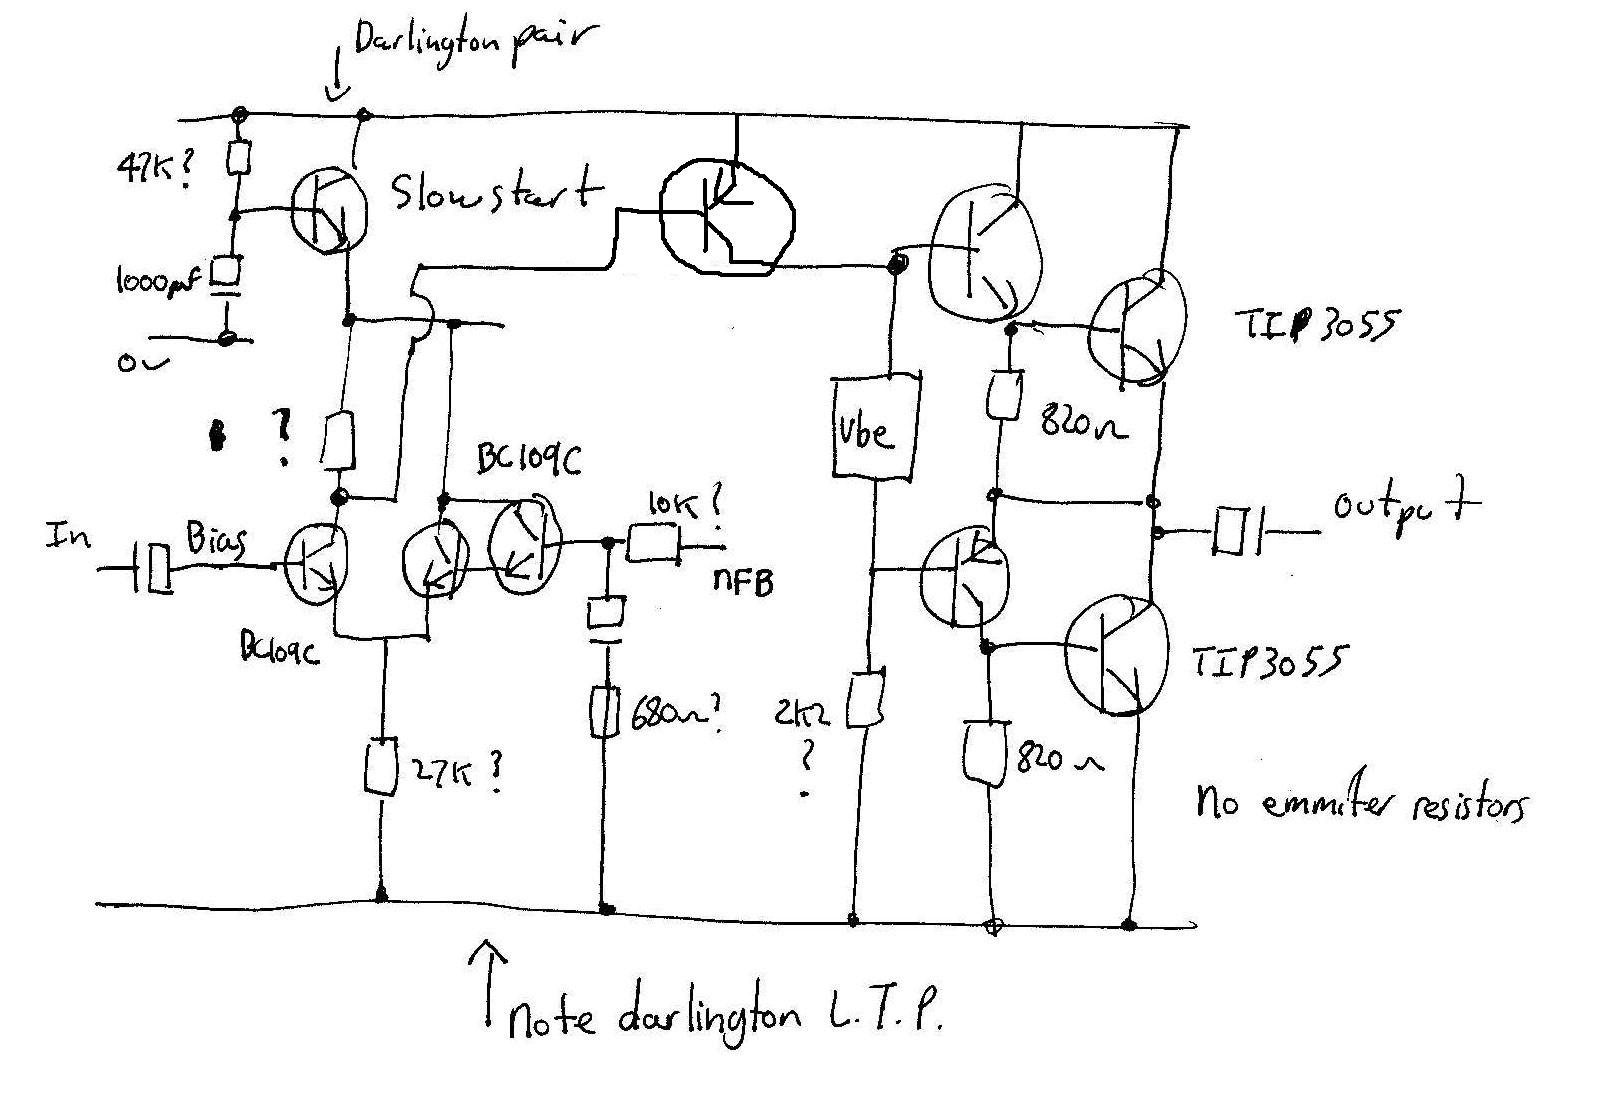 Darlington pair
47K?
Slow start
1000µf
0v
TIP3055
?
Vbe
820Ω
BC109C
10K?
output
In
Bias
nFB
BC109C
TIP3055
680Ω?
2K2
?
27K?
820Ω
No emmiter resistors
Note darlington L.T.P.